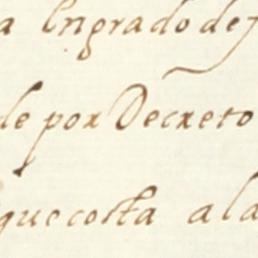 a Ingrado de
de por Decreto
que costa a la